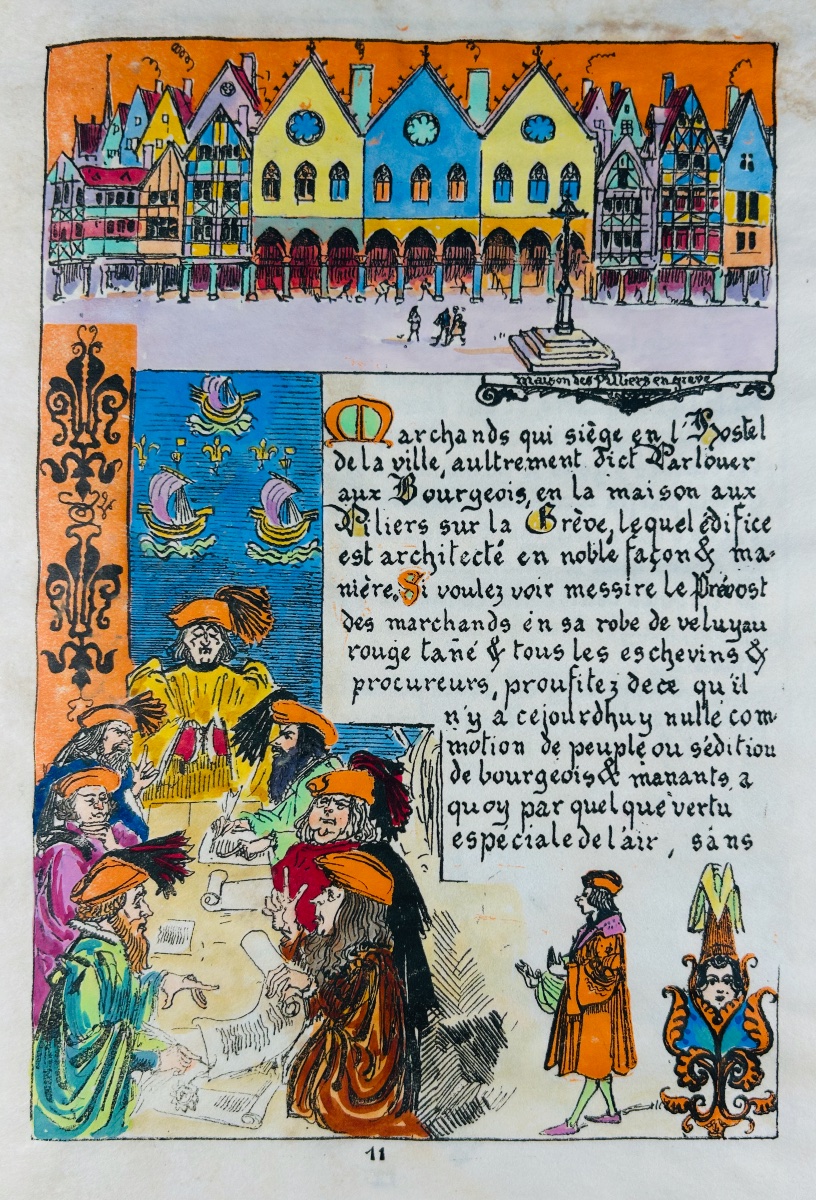 Maison des Pilliers en Grève
Marchands qui siège en l'Hostel
de la ville, aultrement dict Parlouer
aux Bourgeois, en la maison aux
Piliers sur la Grève, lequel édifice
est architecté en noble façon & ma-
nière. Si voulez voir messire le Prévost
des marchands en sa robe de veluyau
rouge tañé & tous les eschevins &
procureurs, proufitez de ce qu'il
n'y a cejourdhuy nulle com-
motion de peuple ou sédition
de bourgeois & manants, a
quoy par quelque vertu
espéciale de l'air, sans
11